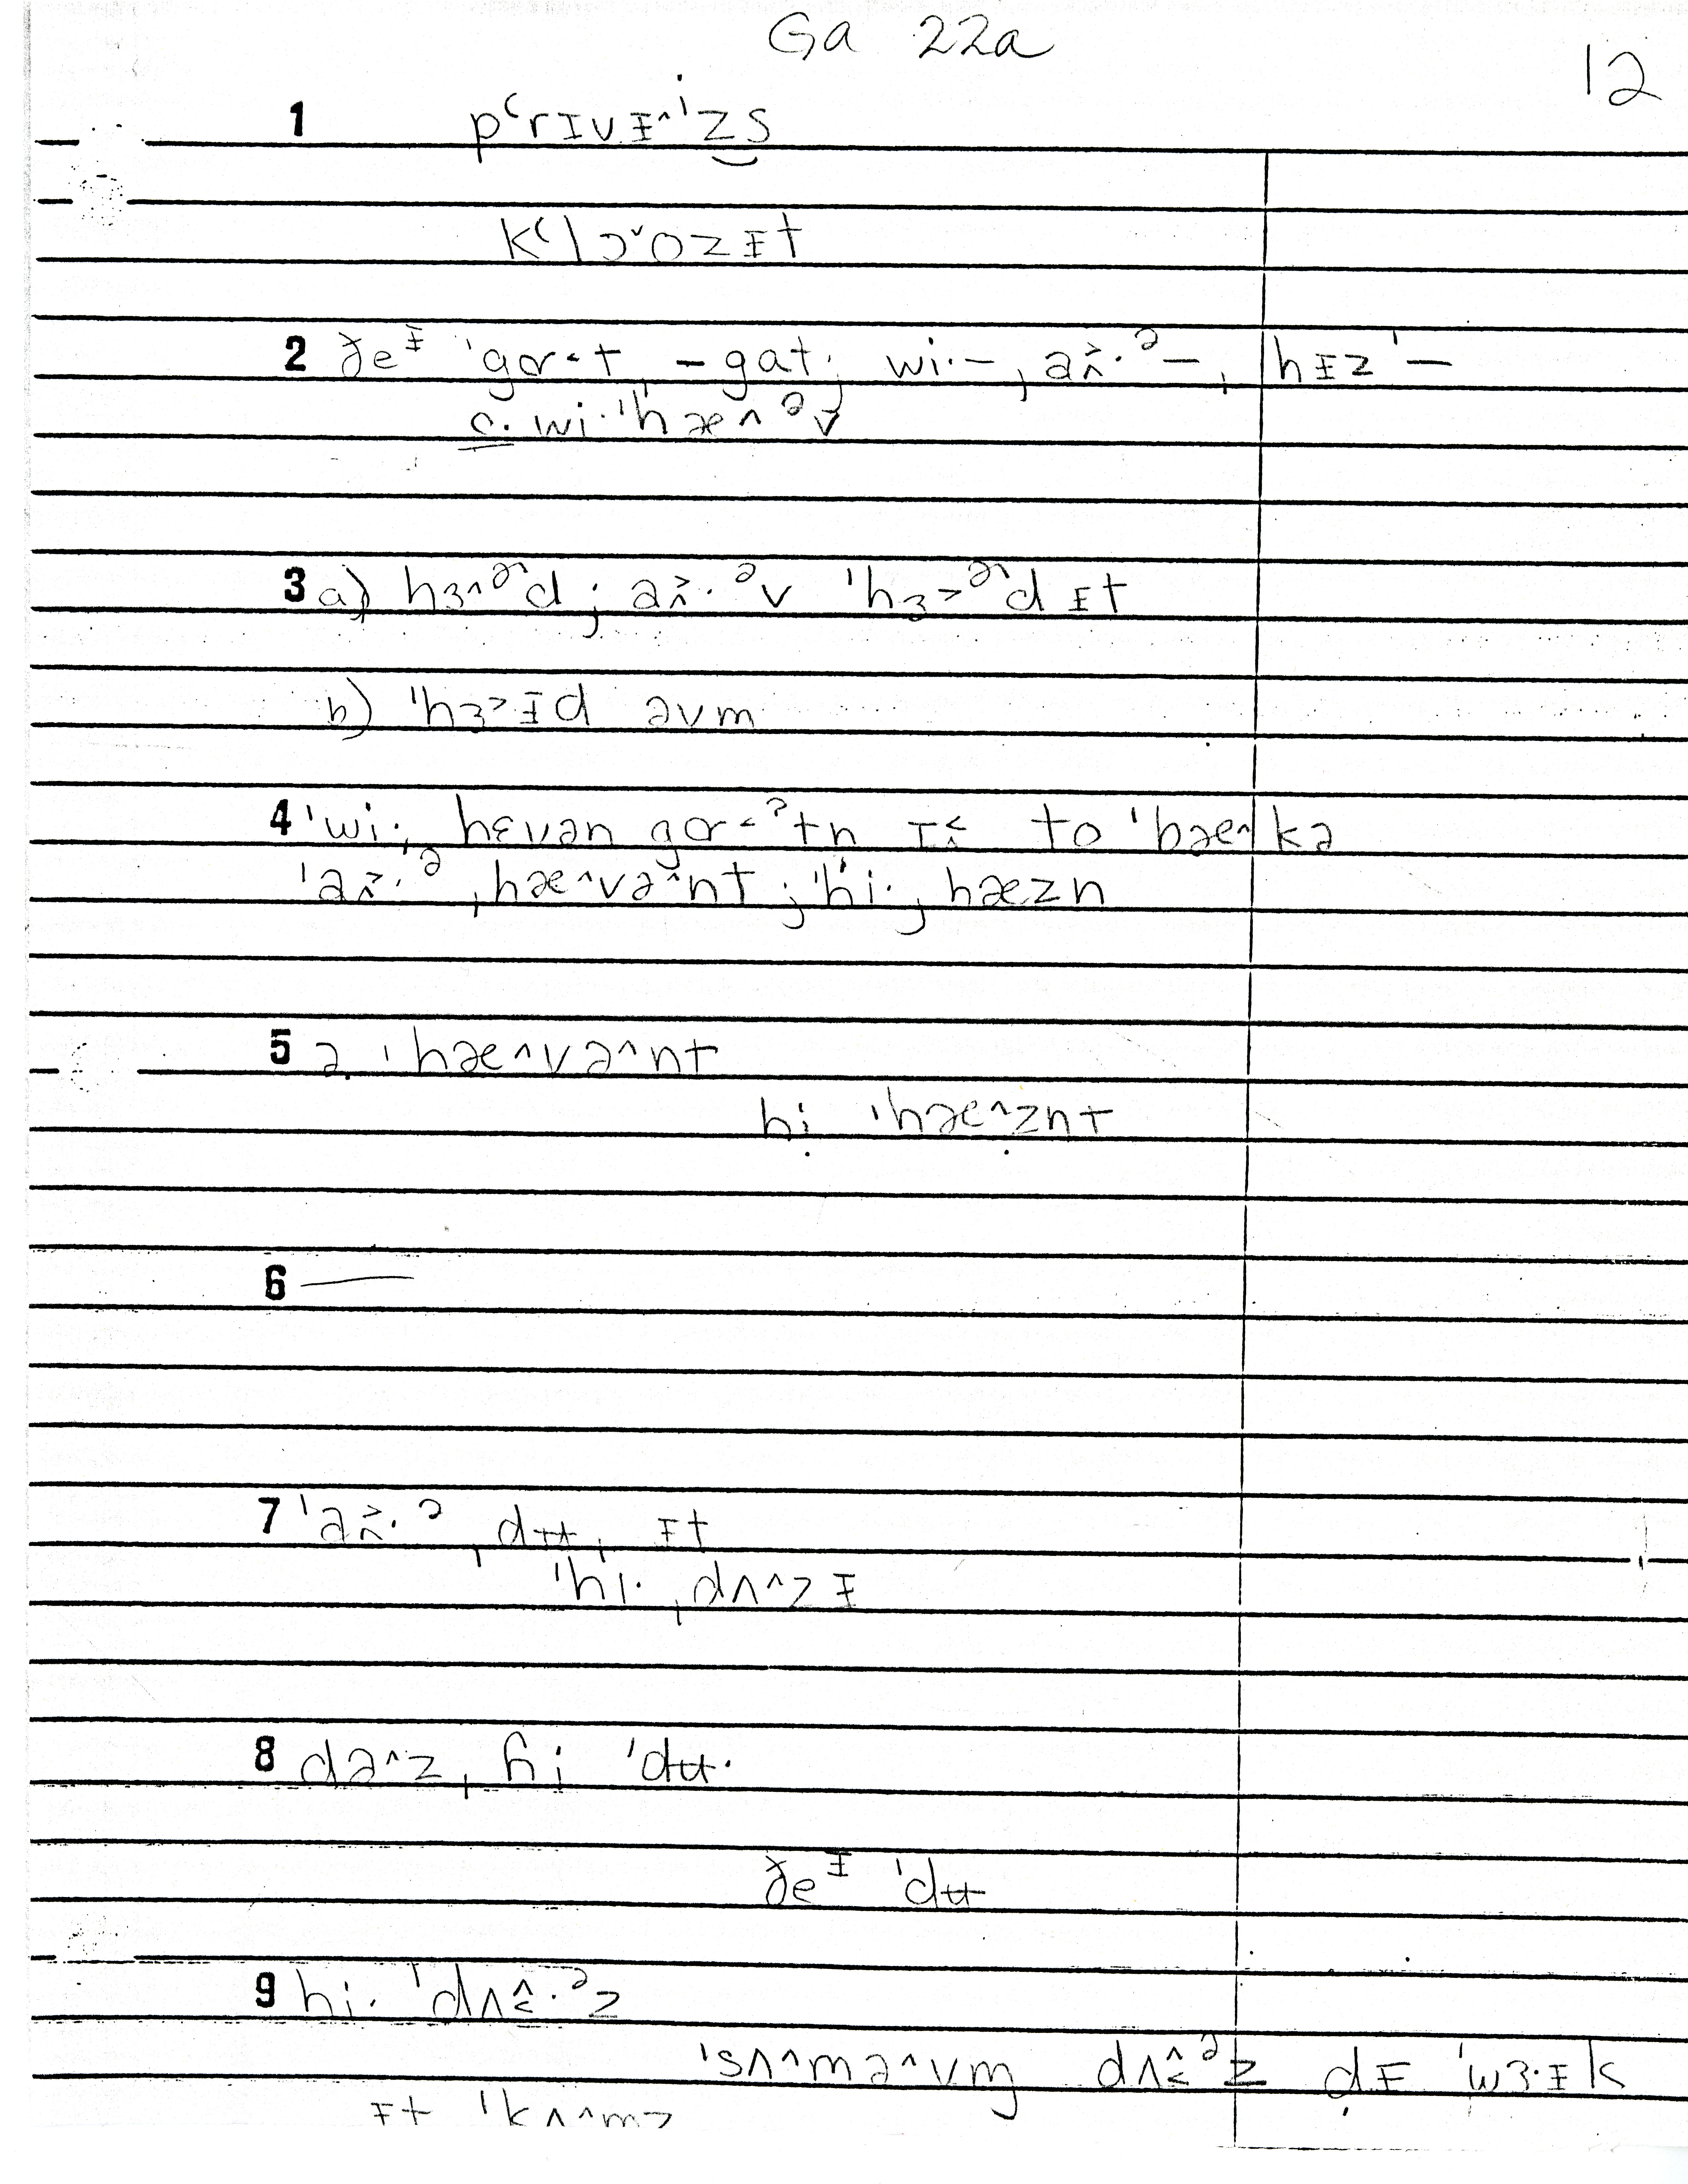 Ga 22a
12
1 pʻrɪvɪ̵^ˈzs
kʻlɔˇozɪ̵t
2 ðeɪ̵ ˈgɑ˂t, -gat; wi·-, a·ə-, hɪ̵zˈ-
c. wi·ˈhæ^əv
3 a) hɜ^ɚd; a·əv ˈhɜ˃ɚd ɪ̵t
b) ˈhɜ˃ɪ̵d əvm
4 ˈwi·, hɛvən gɑ˂ʔtn ɪ to ˈbæ^kə
ˈa·ə ˌhæ^və^nt; ˈhi·, hæzn
5 a. ˈhæ^və^nt
hi ˈhæ^znt
6 —
7 ˈa·ə ˌdʉ, ɪ̵t
ˈhi· ˌdʌ^zɪ̵
8 də^z, hi ˈdʉ·
ðeɪ̵ ˈdʉ
9 hi· ˈdʌ·əz
ˈsʌ^mə^vm dʌəz dɪ̵ ˈwɜ·ɪ̵k
ɪ̵t ˈkʌ^mz